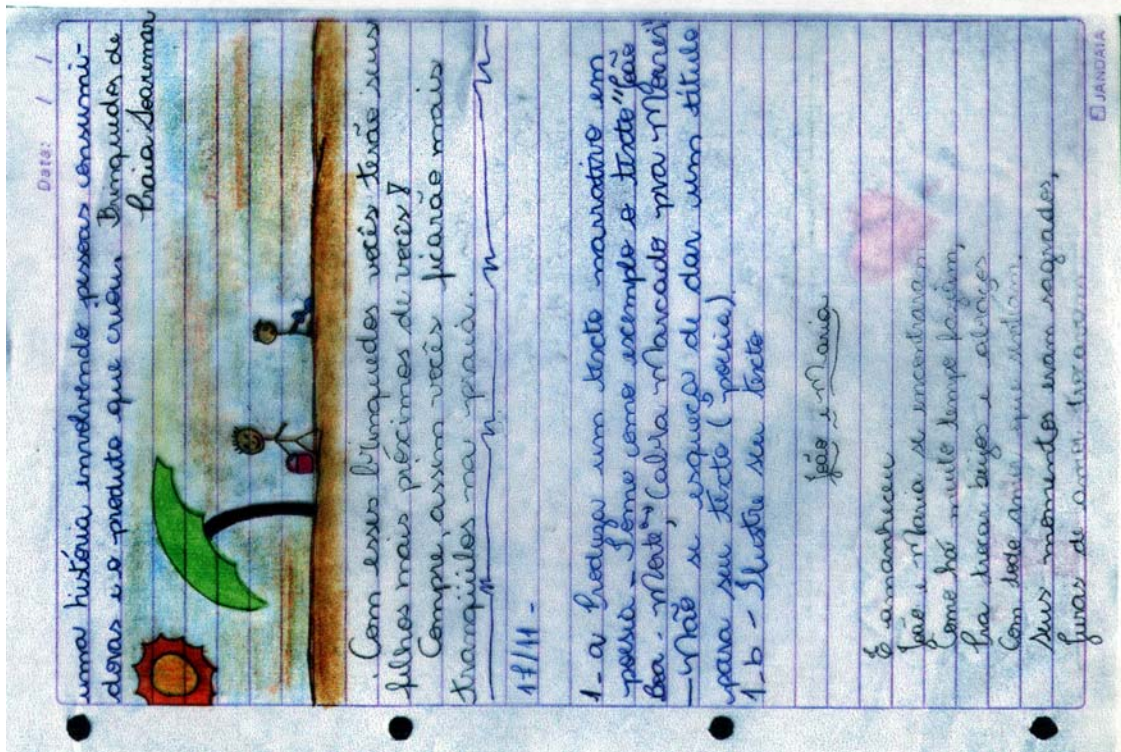 Data: / /
uma história envolvendo pessoas consumi-
doras e o produto que criou.
Brinquedos de
Praia Soaremar
Com esses brinquedos vocês terão seus
filhos mais pŕocimos de vocês!
Compre, assim vocês ficarão mais
tranqüilos na praia.
17/11 -
1-a Produza um texto narrativo em
poesia - Tome como exemplo o texto "João
Boa-Morte, Cabra Marcado pra Morrer"
- Não se esqueça de dar um título
para seu texto (poesia)
1-b - Ilustre seu texto
João e Maria
E amanheceu
João e Maria se encontraram
Como há muito tempo faziam,
Pra trocar beijos e abraços
Com todo amor que sentiam.
Seus momentos eram sagrados,
Juras de amor trocavam
JANDAIA